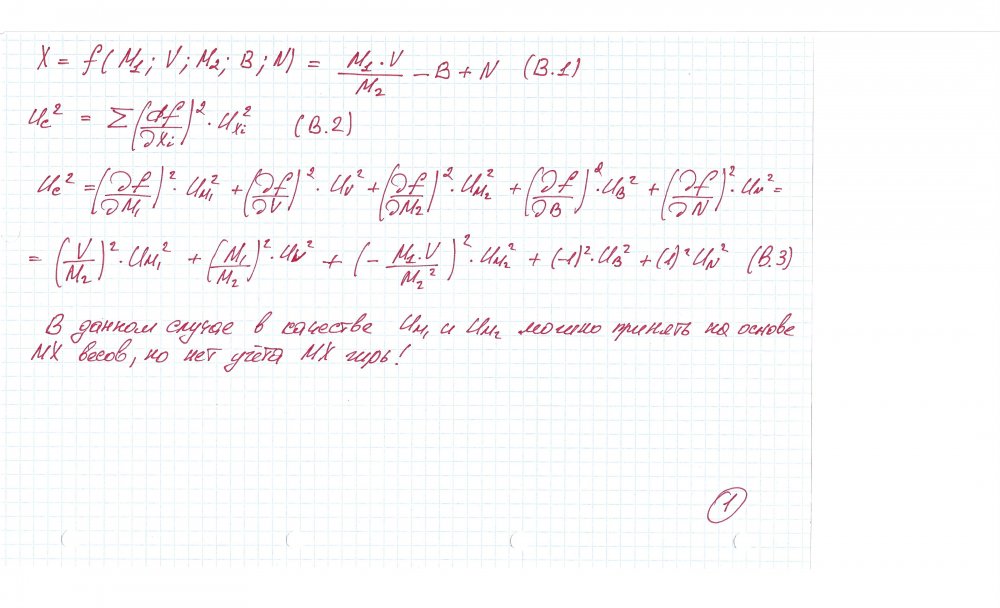 X = f(M₁; V; M₂; B; N) = M₁·V/M₂ − B + N (B.1)
u_c² = Σ(df/∂x_i)²·u_{x_i}² (B.2)
u_c² = (∂f/∂M₁)²·u_{M₁}² + (∂f/∂V)²·u_V² + (∂f/∂M₂)²·u_{M₂}² + (∂f/∂B)²·u_B² + (∂f/∂N)²·u_N² =
= (V/M₂)²·u_{M₁}² + (M₁/M₂)²·u_V² + (−M₁·V/M₂²)²·u_{M₂}² + (−1)²·u_B² + (1)²u_N² (B.3)
В данном случае в качестве u_{M₁} и u_{M₂} можно принять на основе
МХ весов, но нет учёта МХ гирь!
1